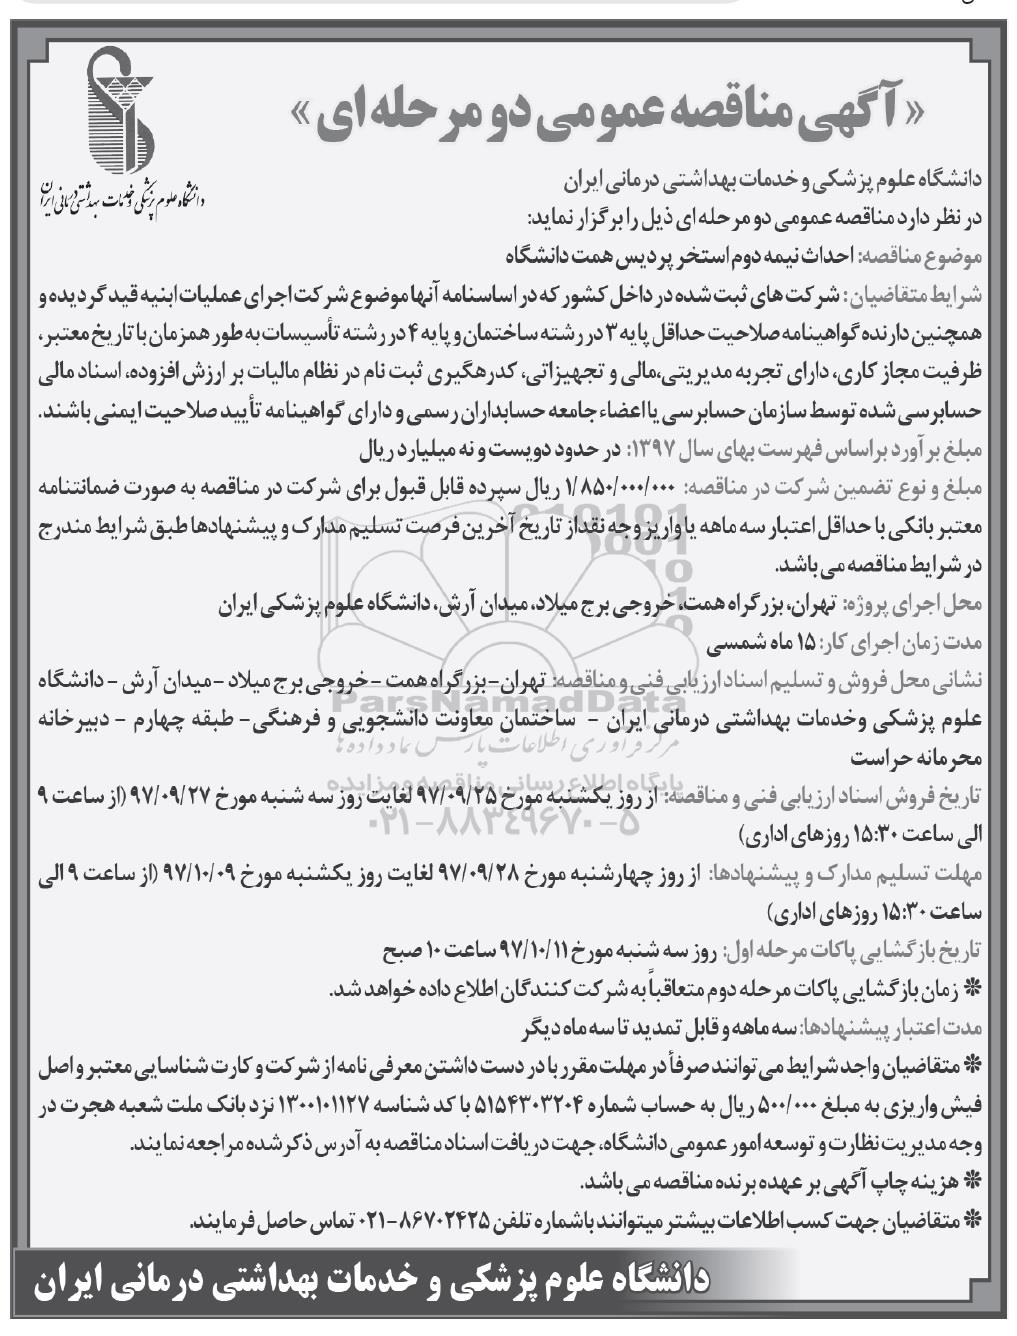 « آگهی مناقصه عمومی دو مرحله ای »
دانشگاه علوم پزشکی و خدمات بهداشتی درمانی ایران
دانشگاه علوم پزشکی و خدمات بهداشتی درمانی ایران
در نظر دارد مناقصه عمومی دو مرحله ای ذیل را برگزار نماید:
موضوع مناقصه: احداث نیمه دوم استخر پردیس همت دانشگاه
شرایط متقاضیان : شرکت های ثبت شده در داخل کشور که در اساسنامه آنها موضوع شرکت اجرای عملیات ابنیه قید گردیده و
همچنین دارنده گواهینامه صلاحیت حداقل پایه ۳ در رشته ساختمان و پایه ۴ در رشته تأسیسات به طور همزمان با تاریخ معتبر،
ظرفیت مجاز کاری، دارای تجربه مدیریتی،مالی و تجهیزاتی، کدرهگیری ثبت نام در نظام مالیات بر ارزش افزوده، اسناد مالی
حسابرسی شده توسط سازمان حسابرسی یا اعضاء جامعه حسابداران رسمی و دارای گواهینامه تأیید صلاحیت ایمنی باشند.
مبلغ برآورد براساس فهرست بهای سال ۱۳۹۷: در حدود دویست و نه میلیارد ریال
مبلغ و نوع تضمین شرکت در مناقصه: ۱/۸۵۰/۰۰۰/۰۰۰ ریال سپرده قابل قبول برای شرکت در مناقصه به صورت ضمانتنامه
معتبر بانکی با حداقل اعتبار سه ماهه یا واریز وجه نقداز تاریخ آخرین فرصت تسلیم مدارک و پیشنهادها طبق شرایط مندرج
در شرایط مناقصه می باشد.
محل اجرای پروژه: تهران، بزرگراه همت، خروجی برج میلاد، میدان آرش، دانشگاه علوم پزشکی ایران
مدت زمان اجرای کار: ۱۵ ماه شمسی
نشانی محل فروش و تسلیم اسناد ارزیابی فنی و مناقصه: تهران-بزرگراه همت -خروجی برج میلاد -میدان آرش - دانشگاه
ParsNamadData
علوم پزشکی وخدمات بهداشتی درمانی ایران - ساختمان معاونت دانشجویی و فرهنگی- طبقه چهارم - دبیرخانه
مرکز فرآوری اطلاعات پارس نماد داده ها
محرمانه حراست
پایگاه اطلاع رسانی مناقصه و مزایده
تاریخ فروش اسناد ارزیابی فنی و مناقصه: از روز یکشنبه مورخ ۹۷/۰۹/۲۵ لغایت روز سه شنبه مورخ ۹۷/۰۹/۲۷ (از ساعت ۹
۰۲۱-۸۸۳۴۹۶۷۰-۵
الی ساعت ۱۵:۳۰ روزهای اداری)
مهلت تسلیم مدارک و پیشنهادها: از روز چهارشنبه مورخ ۹۷/۰۹/۲۸ لغایت روز یکشنبه مورخ ۹۷/۱۰/۰۹ (از ساعت ۹ الی
ساعت ۱۵:۳۰ روزهای اداری)
تاریخ بازگشایی پاکات مرحله اول: روز سه شنبه مورخ ۹۷/۱۰/۱۱ ساعت ۱۰ صبح
* زمان بازگشایی پاکات مرحله دوم متعاقباً به شرکت کنندگان اطلاع داده خواهد شد.
مدت اعتبار پیشنهادها: سه ماهه و قابل تمدید تا سه ماه دیگر
* متقاضیان واجد شرایط می توانند صرفاً در مهلت مقرر با در دست داشتن معرفی نامه از شرکت و کارت شناسایی معتبر و اصل
فیش واریزی به مبلغ ۵۰۰/۰۰۰ ریال به حساب شماره ۵۱۵۴۳۰۳۲۰۴ با کد شناسه ۱۳۰۰۱۰۱۱۲۷ نزد بانک ملت شعبه هجرت در
وجه مدیریت نظارت و توسعه امور عمومی دانشگاه، جهت دریافت اسناد مناقصه به آدرس ذکر شده مراجعه نمایند.
* هزینه چاپ آگهی بر عهده برنده مناقصه می باشد.
* متقاضیان جهت کسب اطلاعات بیشتر میتوانند باشماره تلفن ۸۶۷۰۲۴۲۵-۰۲۱ تماس حاصل فرمایند.
دانشگاه علوم پزشکی و خدمات بهداشتی درمانی ایران